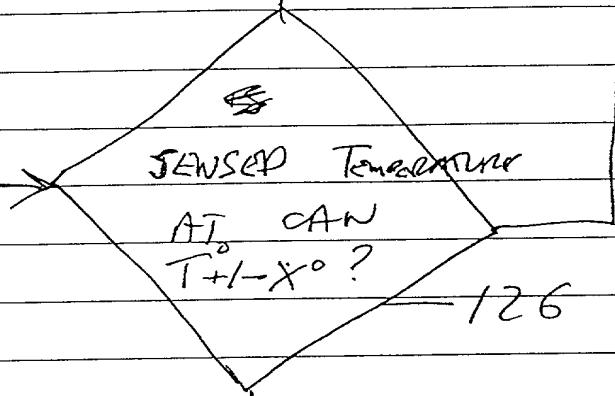 SENSED TEMPERATURE
AT CAN
T°+/-X°?
126